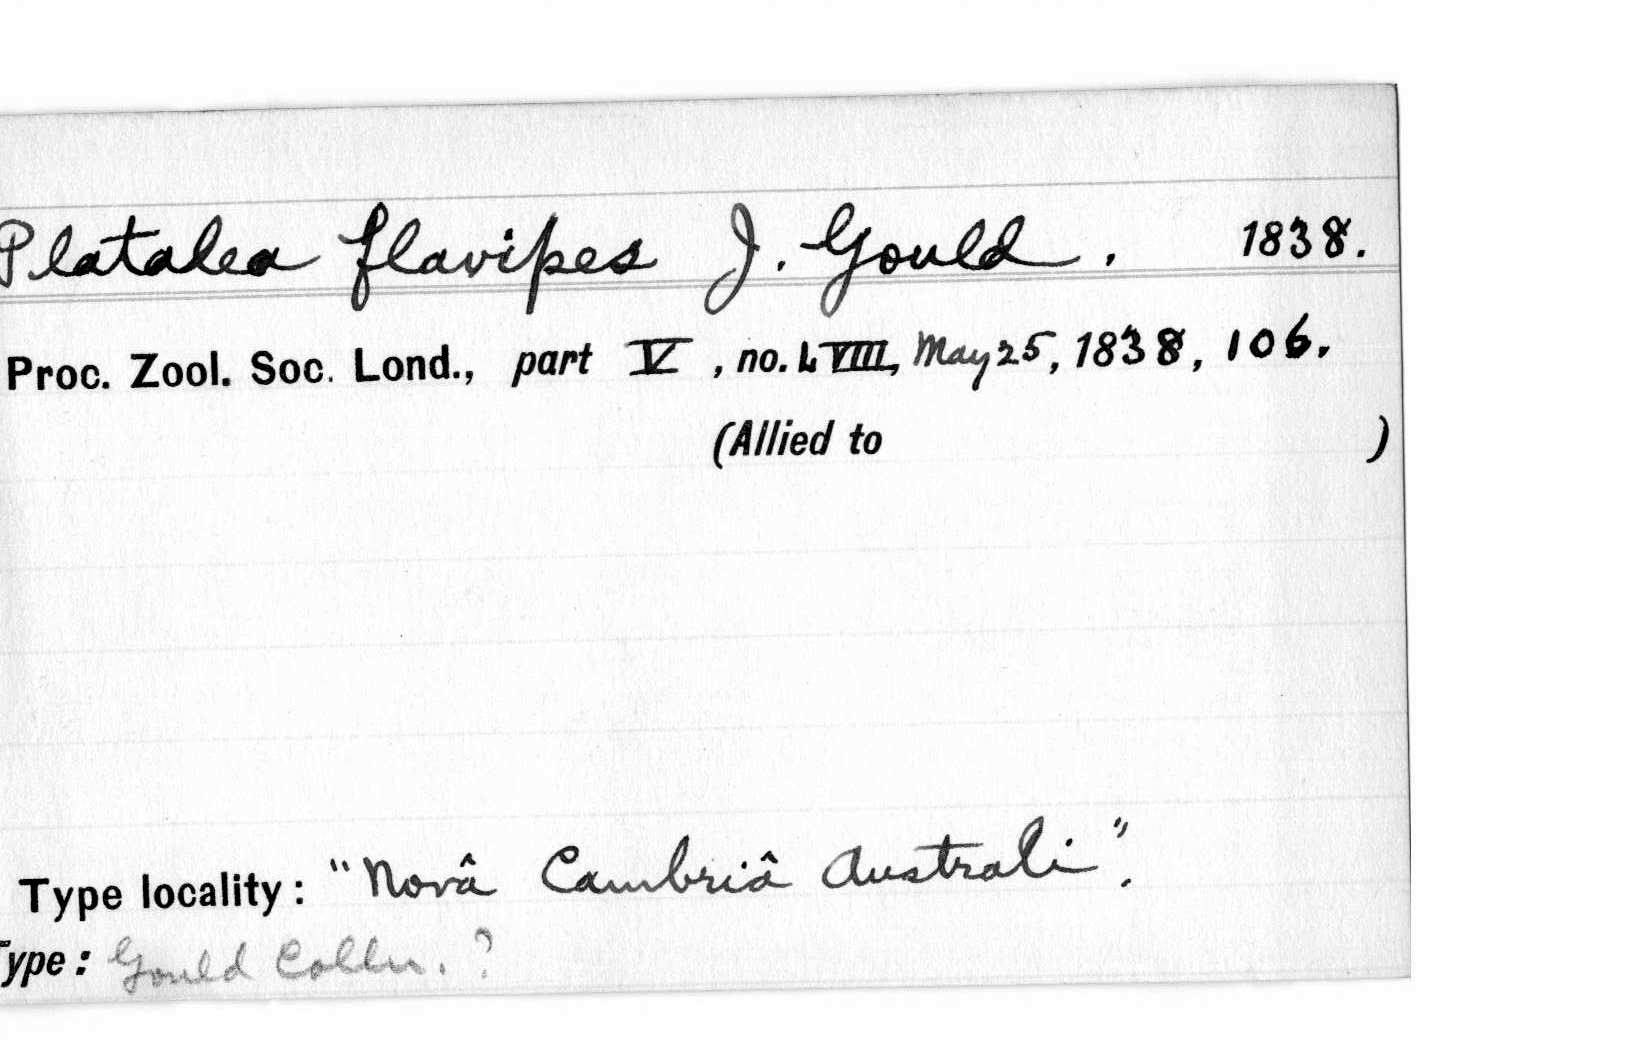 Platalea flavipes J. Gould. 1838.
Proc. Zool. Soc. Lond., part V, no. LVIII, May 25, 1838, 106.
(Allied to )
Type locality: "Novâ Cambriâ Australi".
Type: Gould Colln. ?